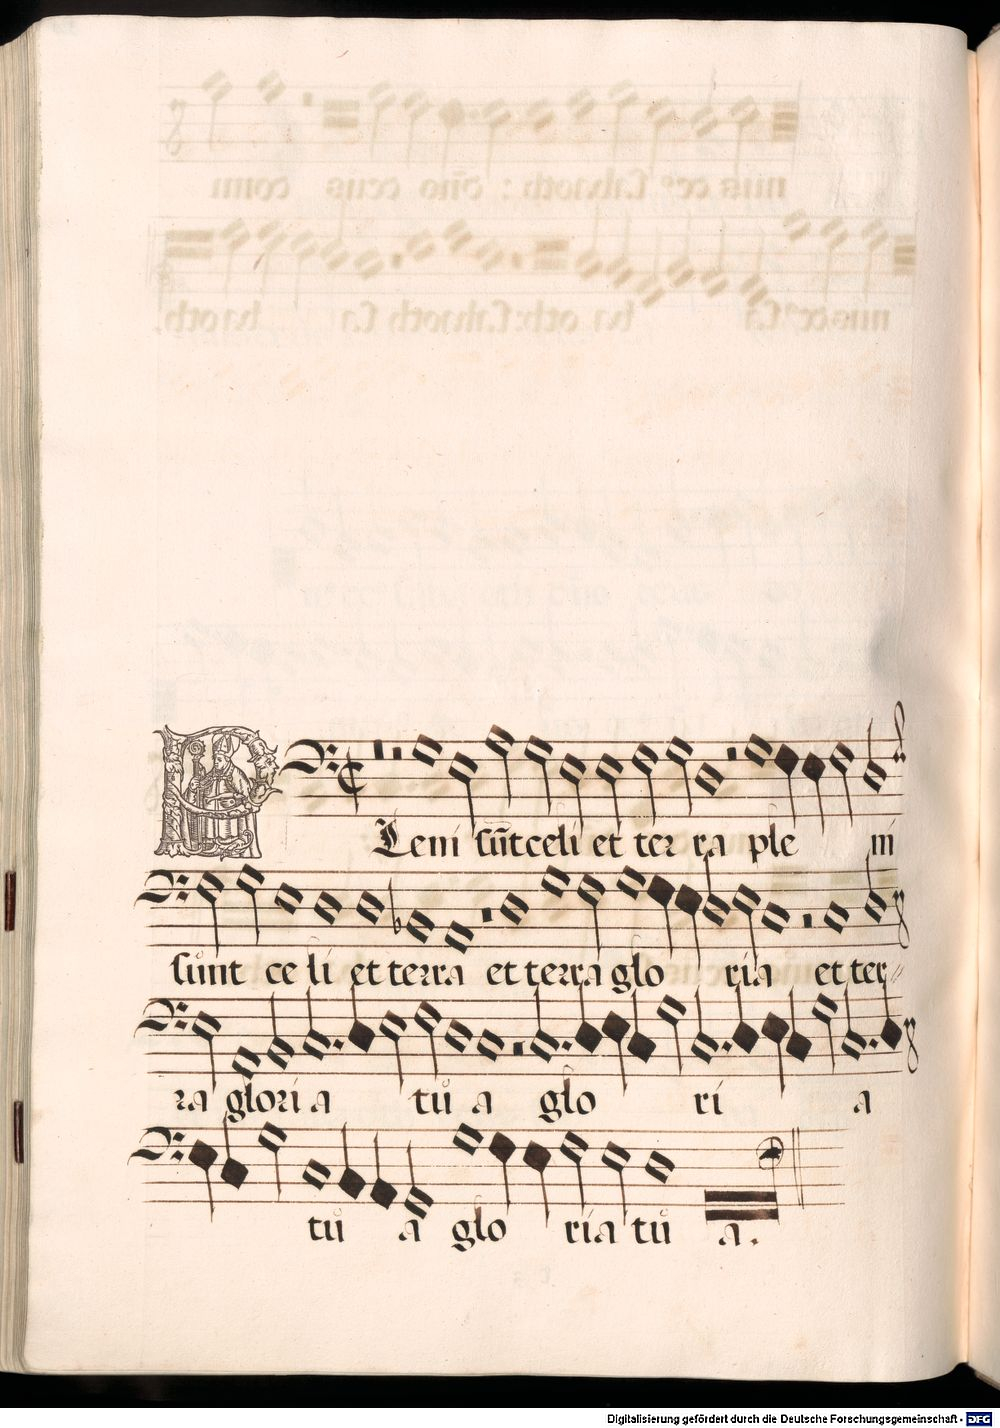 Pleni sūt celi et ter ra ple ni
sunt ce li et terra et terra glo ria et ter
ra gloria tu a glo ri a
tu a glo ria tu a.
Digitalisierung gefördert durch die Deutsche Forschungsgemeinschaft - DFG